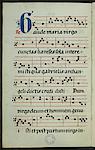 Gaude maria virgo
cunctas hereses sola intere
misti que gabrielis archan
geli dictis credi disti Dum
virgo deum et hominem genu
isti et post partum virgo in